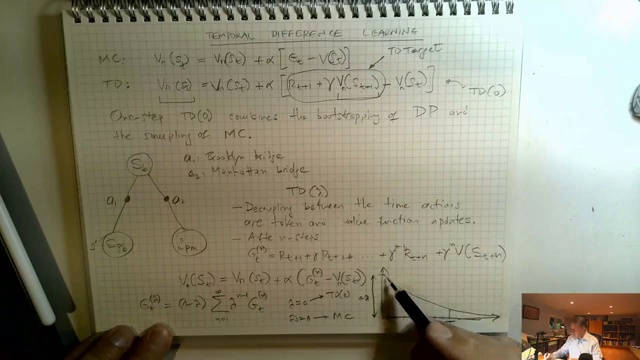 TEMPORAL DIFFERENCE LEARNING
MC: Vπ(St) = Vπ(St) + α [Gt - V(St)]
TD Target
TD: Vπ(St) = Vπ(St) + α [Rt+1 + γ Vπ(St+1) - Vπ(St)]
TD(0)
One-step TD(0) combines the bootstrapping of DP and
the sampling of MC.
a1: Brooklyn bridge
a2: Manhattan bridge
a1
a2
TD(λ)
- Decoupling between the time actions
are taken and value function updates.
- After n-steps
Gt(n) = Rt+1 + γ Rt+2 + ... + γ^n-1 Rt+n + γ^n V(St+n)
Vπ(St) = Vπ(St) + α (Gt(n) - Vπ(St))
Gt(λ) = (1-λ) Σ λ^n-1 Gt(n)
λ=0 → TD(0)
λ=1 → MC